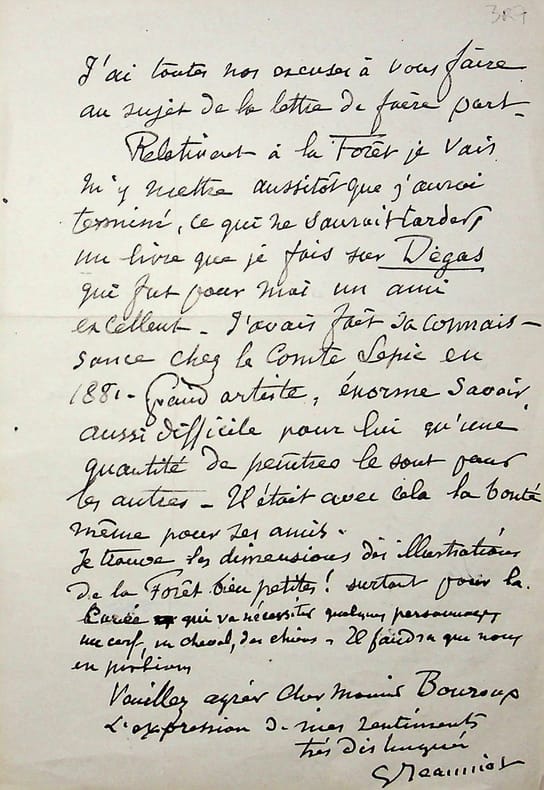 327
J'ai toutes nos excuses à vous faire
au sujet de la lettre de faire part -
Relativement à la Forêt je vais
m'y mettre aussitôt que j'aurai
terminé, ce qui ne saurait tarder,
un livre que je fais sur Degas
qui fut pour moi un ami
excellent - J'avais fait sa connais-
sance chez le Comte Lepic en
1881 - Grand artiste, énorme savoir
aussi difficile pour lui qu'une
quantité de peintres le sont pour
les autres - Il était avec cela la bonté
même pour ses amis.
Je trouve les dimensions des illustrations
de la Forêt bien petites ! surtout pour la
Curée qui va nécessiter quelques personnages
un cerf, un cheval, des chiens - Il faudra que nous
en parlions
Veuillez agréer Cher Monsieur Bouroux
L'expression de mes sentiments
très distingués
GJeanniot